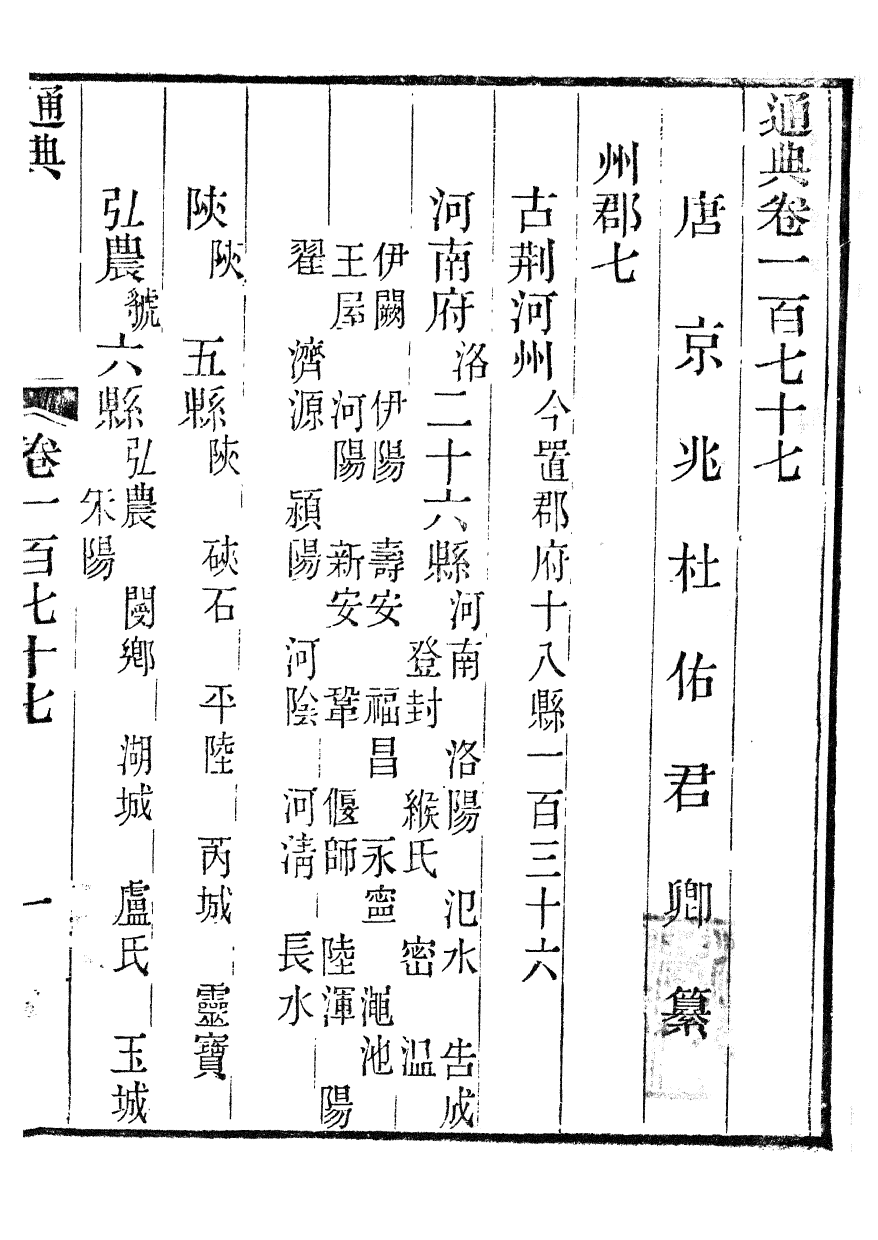 通典卷一百七十七
唐京兆杜佑君卿纂
州郡七
古荆河州今置郡府十八縣一百三十六
河南府洛二十六縣河南 洛陽 氾水 告成
登封 緱氏 密 温
伊闕 伊陽 壽安 福昌 永寧 澠池
王屋 河陽 新安 鞏 偃師 陸渾 陽
翟 濟源 潁陽 河陰 河清 長水
陜陜五縣陜 硤石 平陸 芮城 靈寶
弘農虢六縣弘農 閿鄉 湖城 盧氏 玉城
朱陽
通典 卷一百七十七 一